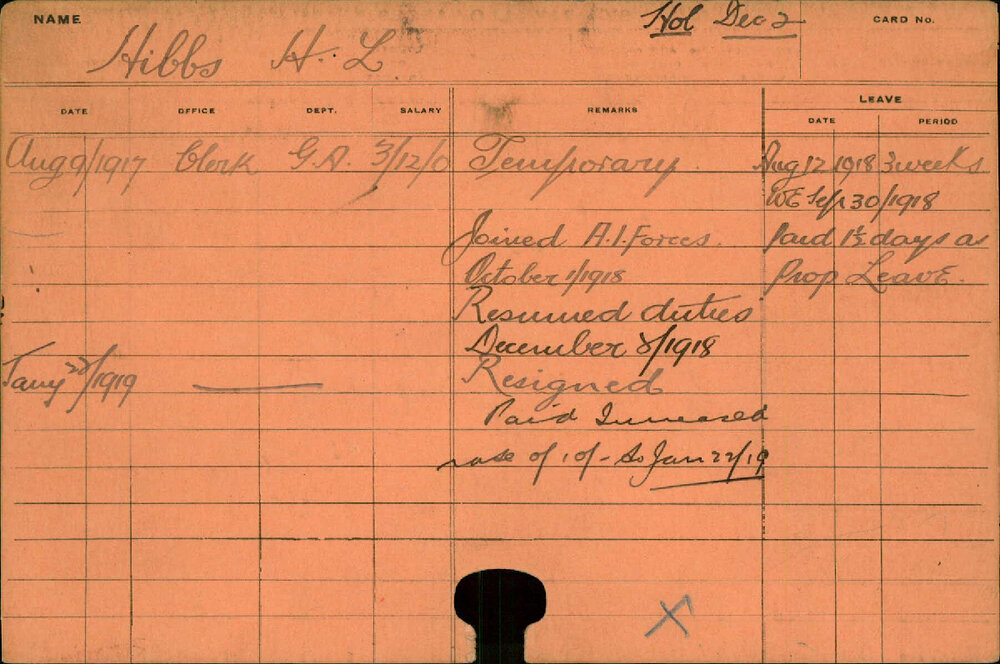 NAME
Hibbs H. L
Hol Dec 2
CARD No.
DATE OFFICE DEPT. SALARY REMARKS LEAVE
DATE PERIOD
Aug 9/1917 Clerk G.A. 3/12/0 Temporary Aug 12 1918 3 weeks
WE Sep 30/1918
Joined A.I. Forces. Paid 1½ days as
October 1/1918 Prop Leave.
Resumed duties
December 8/1918
Jany 22/1919 Resigned
Paid Increased
rate of 10/- to Jan 22/19
X